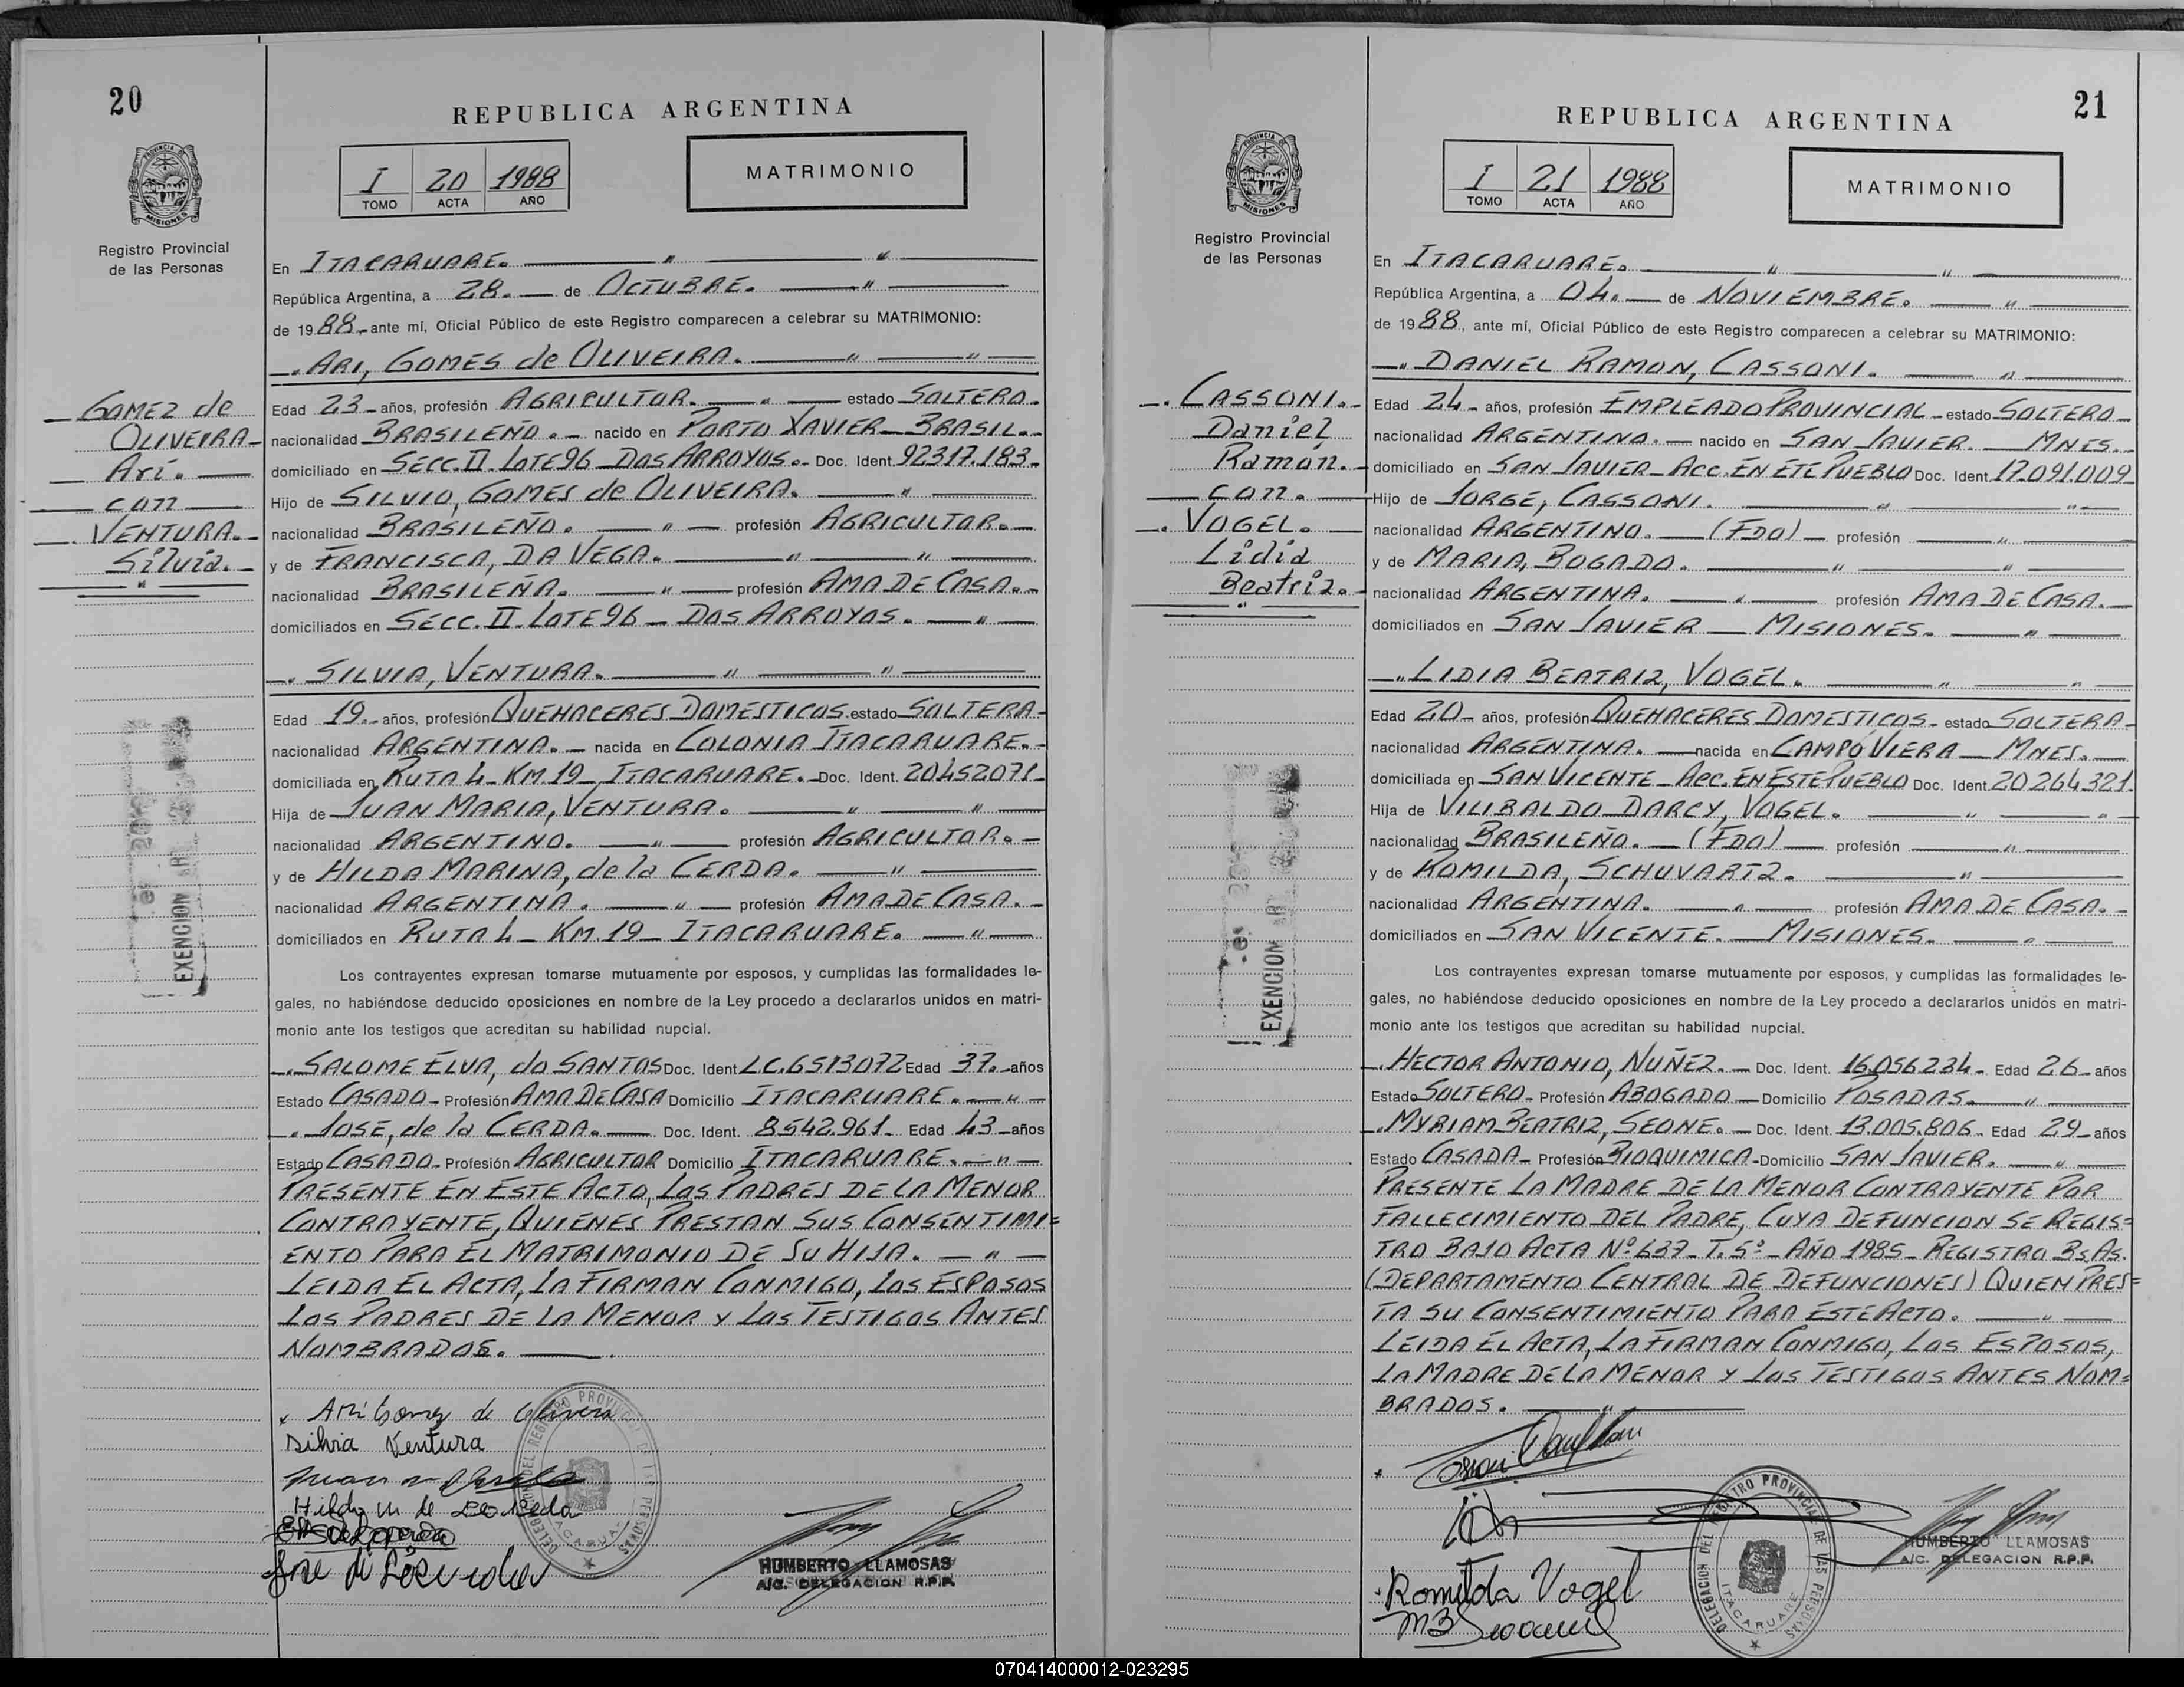 20
REPUBLICA ARGENTINA
I 20 1988
TOMO ACTA AÑO
MATRIMONIO
PROVINCIA DE MISIONES
Registro Provincial
de las Personas
En ITACARUARE. — " — "
República Argentina, a 28. — de OCTUBRE. — "
de 1988, ante mí, Oficial Público de este Registro comparecen a celebrar su MATRIMONIO:
—. ARI, GOMES de OLIVEIRA. — " — "
GOMEZ de
OLIVEIRA
Ari. —
con
—. VENTURA. —
Silvia. —
"
Edad 23 años, profesión AGRICULTOR. — " — estado SOLTERO.
nacionalidad BRASILEÑO. — nacido en PORTO XAVIER — BRASIL.
domiciliado en SECC. II. LOTE 96 — DOS ARROYOS. Doc. Ident. 92317.183.
Hijo de SILVIO, GOMES de OLIVEIRA. — "
nacionalidad BRASILEÑO. — " — profesión AGRICULTOR.
y de FRANCISCA, DA VEGA. — " — "
nacionalidad BRASILEÑA. — " — profesión AMA DE CASA.
domiciliados en SECC. II. LOTE 96 — DOS ARROYOS. — "
—. SILVIA, VENTURA. — " — "
Edad 19. años, profesión QUEHACERES DOMESTICOS. estado SOLTERA
nacionalidad ARGENTINA. — nacida en COLONIA ITACARUARE.
domiciliada en RUTA 4 — KM. 19 — ITACARUARE. Doc. Ident. 20452071
Hija de JUAN MARIA, VENTURA. — " — "
nacionalidad ARGENTINO. — " — profesión AGRICULTOR.
y de HILDA MARINA, de la CERDA. — "
nacionalidad ARGENTINA. — " — profesión AMA DE CASA.
domiciliados en RUTA 4 — KM. 19 — ITACARUARE. — "
EXENCION
Los contrayentes expresan tomarse mutuamente por esposos, y cumplidas las formalidades le-
gales, no habiéndose deducido oposiciones en nombre de la Ley procedo a declararlos unidos en matri-
monio ante los testigos que acreditan su habilidad nupcial.
—. SALOME ELVA, do SANTOS Doc. Ident LC.6513072 Edad 37. años
Estado CASADO — Profesión AMA DE CASA Domicilio ITACARUARE. — "
—. JOSE, de la CERDA. — Doc. Ident. 8542.961. Edad 43 años
Estado CASADO — Profesión AGRICULTOR Domicilio ITACARUARE. — "
PRESENTE EN ESTE ACTO, LOS PADRES DE LA MENOR
CONTRAYENTE, QUIENES PRESTAN SUS CONSENTIMI=
ENTO PARA EL MATRIMONIO DE SU HIJA. — " —
LEIDA EL ACTA, LA FIRMAN CONMIGO, LOS ESPOSOS
LOS PADRES DE LA MENOR Y LOS TESTIGOS ANTES
NOMBRADOS. —
Ari Gomez de Olivera
Silvia Ventura
DELEGACION DEL REGISTRO PROVINCIAL DE LAS PERSONAS
ITACARUARE
HUMBERTO LLAMOSAS
A/C. DELEGACION R.P.P.
21
REPUBLICA ARGENTINA
I 21 1988
TOMO ACTA AÑO
MATRIMONIO
PROVINCIA DE MISIONES
Registro Provincial
de las Personas
En ITACARUARE. — " — "
República Argentina, a 04. — de NOVIEMBRE. — "
de 1988, ante mí, Oficial Público de este Registro comparecen a celebrar su MATRIMONIO:
—" DANIEL RAMON, CASSONI. — "
—. CASSONI. —
Daniel
Ramón. —
con. —
—. VOGEL. —
Lidia
Beatriz. —
"
Edad 24 años, profesión EMPLEADO PROVINCIAL estado SOLTERO
nacionalidad ARGENTINO. — nacido en SAN JAVIER. — MNES.
domiciliado en SAN JAVIER — ACC. EN ETE PUEBLO Doc. Ident. 17.091.009
Hijo de JORGE, CASSONI. — " — "
nacionalidad ARGENTINO. — (FDO) — profesión — "
y de MARIA, BOGADO. — " — "
nacionalidad ARGENTINA. — " — profesión AMA DE CASA.
domiciliados en SAN JAVIER — MISIONES. — "
—" LIDIA BEATRIZ, VOGEL. — " — "
Edad 20 años, profesión QUEHACERES DOMESTICOS — estado SOLTERA
nacionalidad ARGENTINA. — nacida en CAMPO VIERA — MNES.
domiciliada en SAN VICENTE — ACC. EN ESTE PUEBLO Doc. Ident. 20264321.
Hija de VILIBALDO DARCY, VOGEL. — " — "
nacionalidad BRASILEÑO. — (FDO) — profesión — "
y de ROMILDA, SCHUVARTZ. — "
nacionalidad ARGENTINA. — " — profesión AMA DE CASA.
domiciliados en SAN VICENTE. — MISIONES. — "
EXENCION
Los contrayentes expresan tomarse mutuamente por esposos, y cumplidas las formalidades le-
gales, no habiéndose deducido oposiciones en nombre de la Ley procedo a declararlos unidos en matri-
monio ante los testigos que acreditan su habilidad nupcial.
—. HECTOR ANTONIO, NUÑEZ. — Doc. Ident. 16.056234 — Edad 26 años
Estado SOLTERO — Profesión ABOGADO — Domicilio POSADAS. — "
—. MYRIAM BEATRIZ, SEONE. — Doc. Ident. 13.005.806 — Edad 29 años
Estado CASADA — Profesión BIOQUIMICA — Domicilio SAN JAVIER. — "
PRESENTE LA MADRE DE LA MENOR CONTRAYENTE POR
FALLECIMIENTO DEL PADRE, CUYA DEFUNCION SE REGIS=
TRO BAJO ACTA Nº 637 — T. 5º — AÑO 1985 — REGISTRO Bs. As.
(DEPARTAMENTO CENTRAL DE DEFUNCIONES) QUIEN PRES=
TA SU CONSENTIMIENTO PARA ESTE ACTO. — "
LEIDA EL ACTA, LA FIRMAN CONMIGO, LOS ESPOSOS,
LA MADRE DE LA MENOR Y LOS TESTIGOS ANTES NOM=
BRADOS. — "
Romilda Vogel
DELEGACION DEL REGISTRO PROVINCIAL DE LAS PERSONAS
ITACARUARE
HUMBERTO LLAMOSAS
A/C. DELEGACION R.P.P.
070414000012-023295